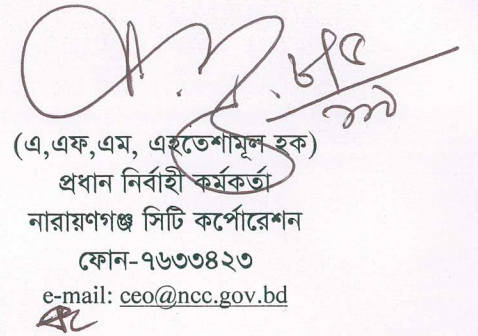 (এ,এফ,এম, এহতেশামূল হক)
প্রধান নির্বাহী কর্মকর্তা
নারায়ণগঞ্জ সিটি কর্পোরেশন
ফোন-৭৬৩৩৪২৩
e-mail: ceo@ncc.gov.bd